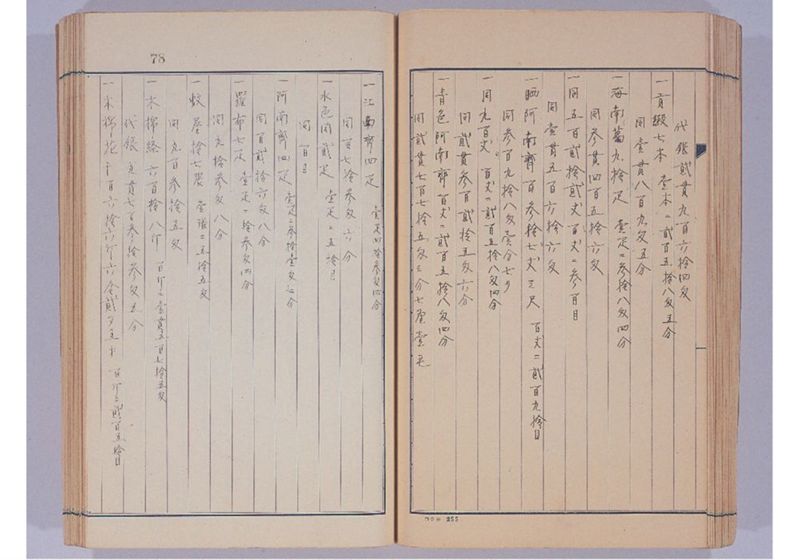 代銀貳貫九百六拾四匁
一首緞七本 壹本ニ貳百五拾八匁五分
同壹貫八百九匁五分
一海南蔦九拾疋 壹疋ニ参拾八匁四分
同参貫四百五拾六匁
一同五百貳拾貳丈 百丈ニ参百目
同壹貫五百六拾六匁
一晒阿南斉百参拾七丈三尺 百丈ニ貳百九拾目
同参百九拾八匁壹分七リ
一同九百丈 百丈ニ貳百五拾八匁四分
同貳貫参百貳拾五匁六分
一青色阿南斉百丈ニ貳百五拾八匁四分
同貳貫七百七拾五匁三分七厘壹毛
255
78
一江南斉四疋 壹疋四拾参匁四分
同百七拾参匁六分
一水色同貳疋 壹疋ニ五拾目
同百目
一阿南斉四疋 壹疋ニ参拾壹匁七分
同百貳拾六匁八分
一羅布七疋 壹疋ニ拾参匁四分
同九拾参匁八分
一蚊屋拾七張 壹張ニ五拾五匁
同九百参拾五匁
一木綿絲六百拾八斤 百斤ニ壹貫五百七拾五匁
代銀九貫七百参拾参匁五分
一木綿花千百六拾六斤六合貳夕五才 百斤ニ貳百五拾目